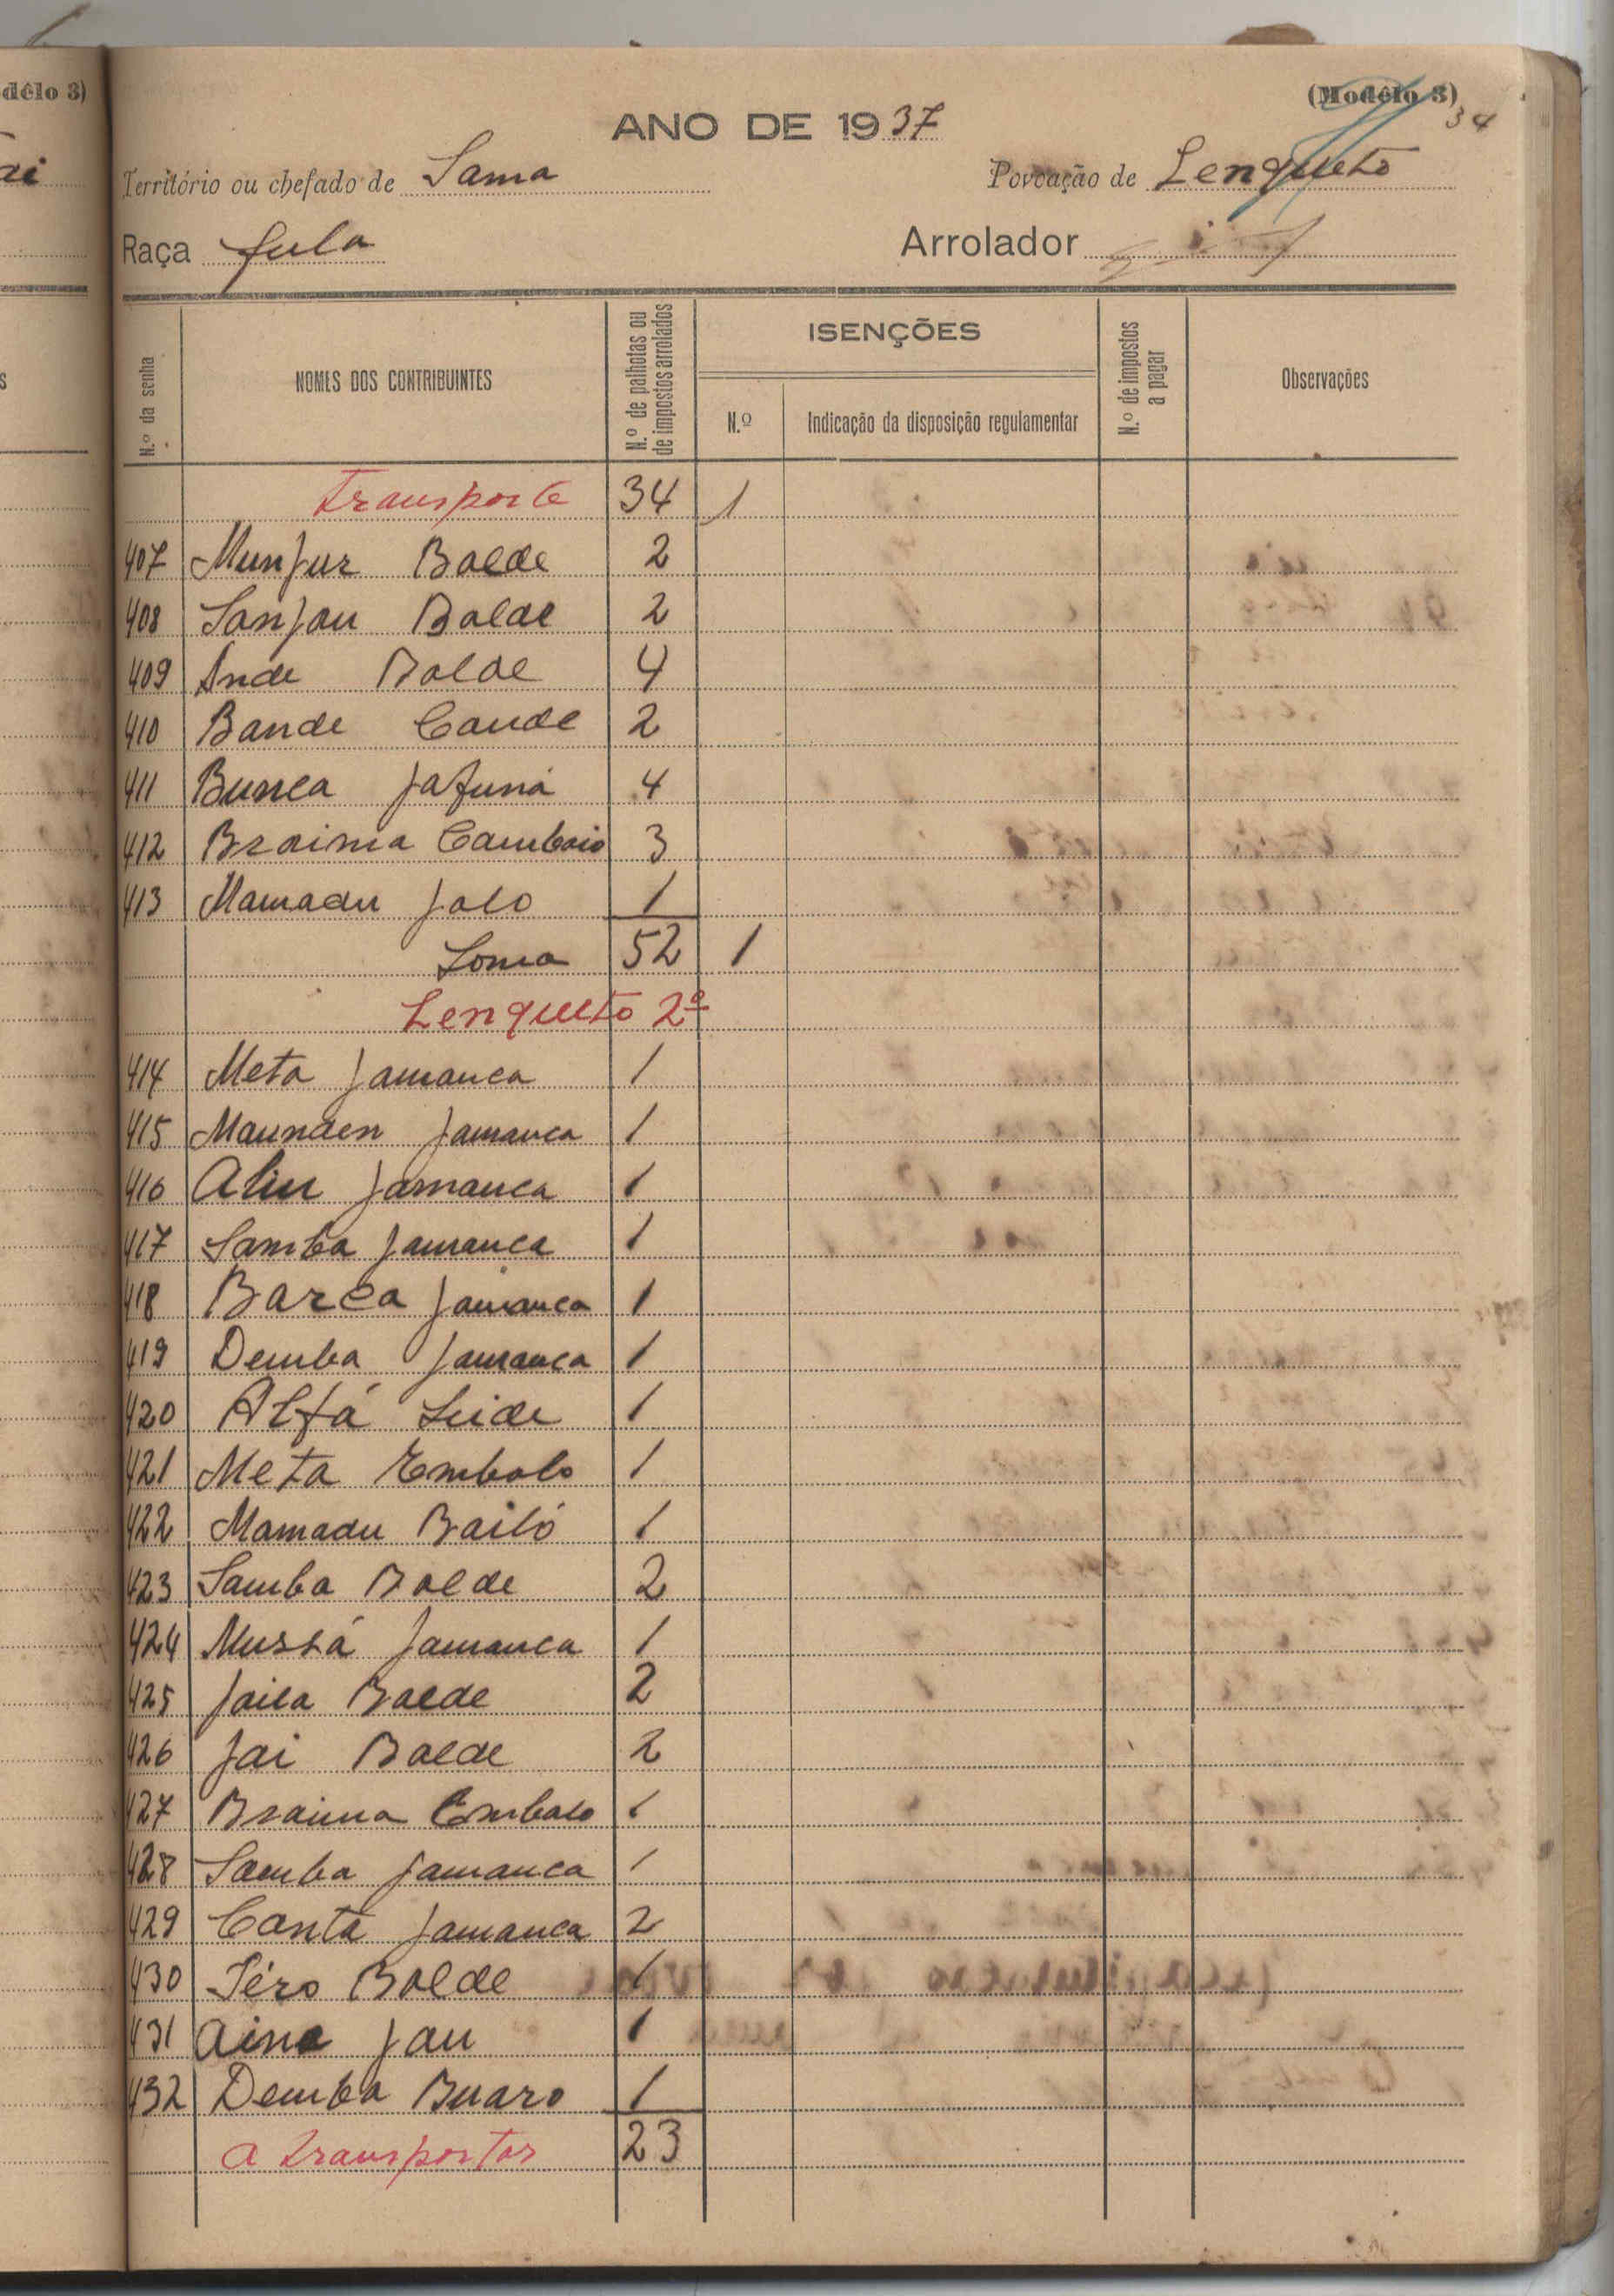 dêlo 3)
ai
(Modêlo 3)
34
ANO DE 1937
Território ou chefado de Sama
Povoação de Lenqueto
Raça fula
Arrolador
N.º da senha
NOMES DOS CONTRIBUINTES
N.º de palhotas ou de impostos arrolados
ISENÇÕES
N.º
Indicação da disposição regulamentar
N.º de impostos a pagar
Observações
Transporte 34 1
407 Munjur Balde 2
408 Sanjau Balde 2
409 Ande Balde 4
410 Bande Cande 2
411 Bunca Jafuna 4
412 Braima Cambaio 3
413 Mamadu Jalo 1
Soma 52 1
Lenqueto 2º
414 Meta Jamanca 1
415 Maunden Jamanca 1
416 Aliu Jamanca 1
417 Samba Jamanca 1
418 Barca Jamanca 1
419 Demba Jamanca 1
420 Alfá Seide 1
421 Meta Embalo 1
422 Mamadu Bailó 1
423 Samba Balde 2
424 Mussá Jamanca 1
425 Jaila Balde 2
426 Jai Balde 2
427 Braima Embalo 1
428 Samba Jamanca 1
429 Canta Jamanca 2
430 Téro Balde 1
431 Aina Jau 1
432 Demba Buaro 1
a transportar 23